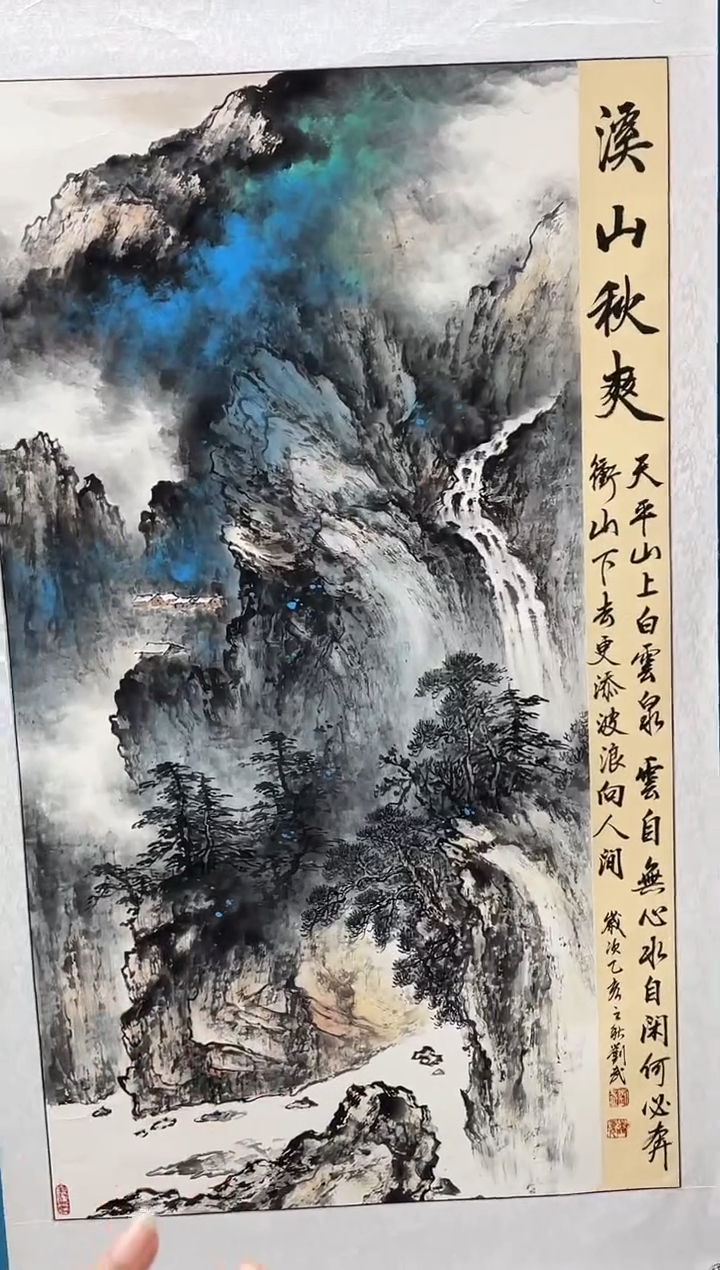 溪山秋爽
天平山上白雲泉雲自無心水自閑何必奔
衝山下去更添波浪向人間
歲次乙亥之秋劉武